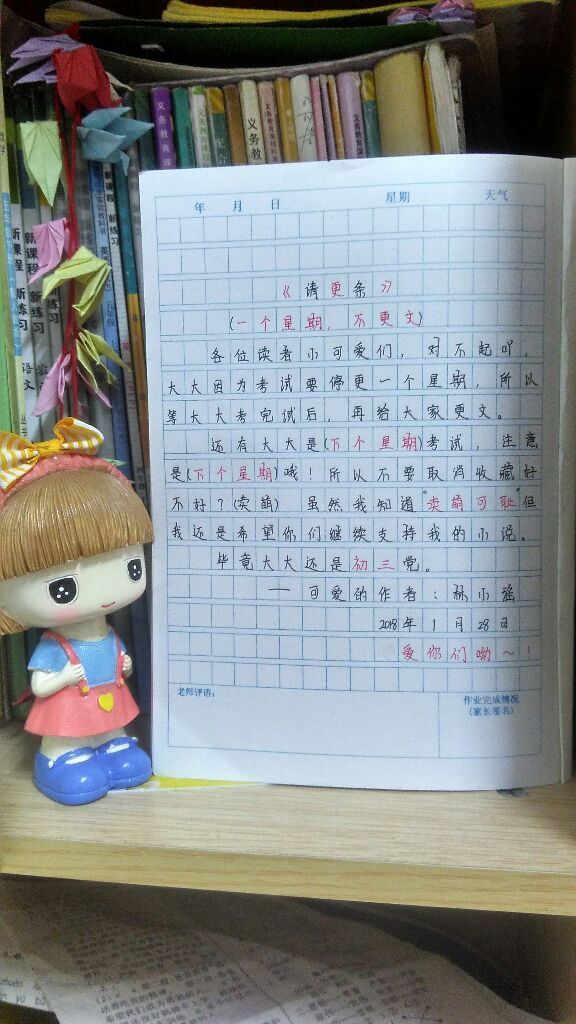 义务教育课
义务教
新课程 新练习
新课程
新练习
语文
年 月 日 星期 天气
《请更条》
(一个星期,不更文)
各位读者小可爱们,对不起吖,
大大因为考试要停更一个星期,所以
等大大考完试后,再给大家更文。
还有大大是(下个星期)考试,注意
是(下个星期)哦!所以不要取消收藏好
不好?(卖萌) 虽然我知道“卖萌可耻”但
我还是希望你们继续支持我的小说。
毕竟大大还是初三党。
——可爱的作者:林小谣
2018年1月28日
爱你们呦~!
老师评语:
作业完成情况
(家长签名)